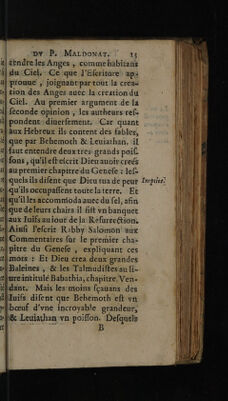 DV P. MALDONAT. 15
tendre les Anges, comme habitans
du Ciel. Ce que l'Escriture ap-
prouue, joignant par tout la crea-
tion des Anges auec la creation du
Ciel. Au premier argument de la
seconde opinion, les autheurs res-
pondent diuersement. Car quant
aux Hebreux ils content des fables,
que par Behemoth & Leuiathan, il
faut entendre deux tres-grands pois-
sons, qu'il escrit Dieu auoir creés
au premier chapitre du Genese: les-
quels ils disent que Dieu tua de peur
Impieté.
qu'ils occupassent toute la terre. Et
qu'il les accommoda auec du sel, afin
que de leurs chairs il fist vn banquet
aux Iuifs au iour de la Resurrection.
Ainsi l'escrit Rabby Salomon aux
Commentaires sur le premier cha-
pitre du Genese, expliquant ces
mots: Et Dieu crea deux grandes
Baleines, & les Talmudistes au li-
ure intitulé Babathia, chapitre, Ven-
dant. Mais les moins sçauans des
Iuifs disent que Behemoth est vn
bœuf d'vne incroyable grandeur,
& Leuiathan vn poisson. Desquels
B